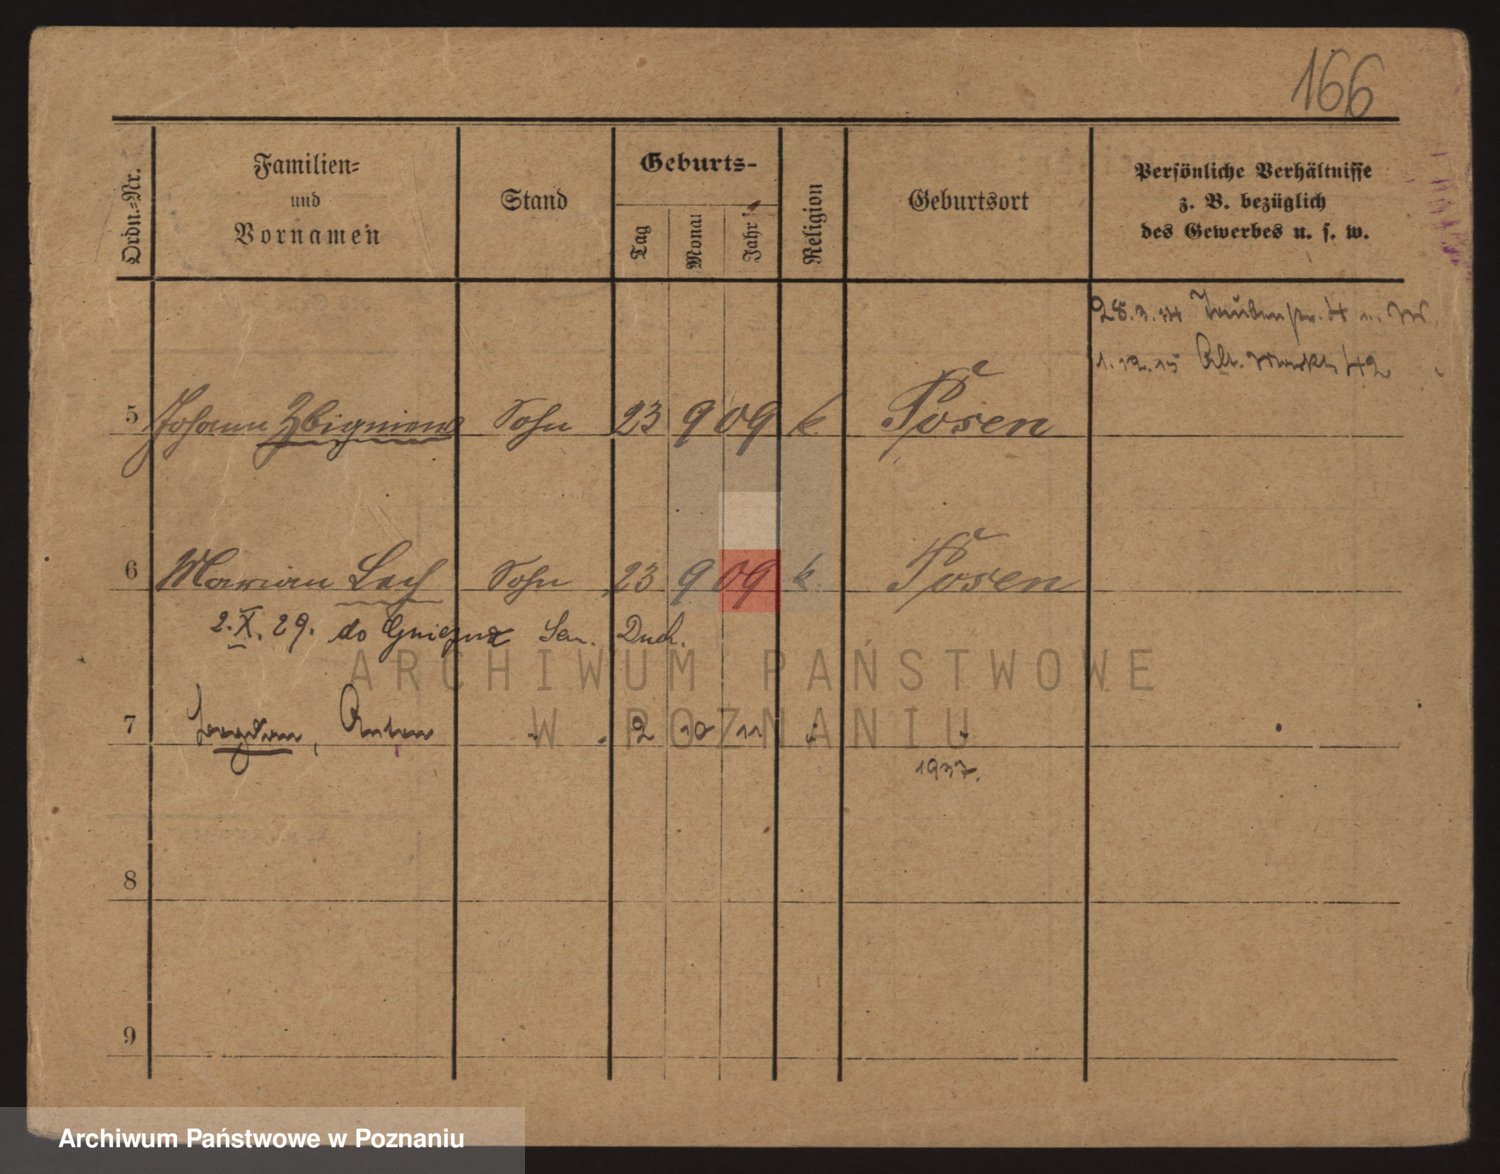 166
Ordn.-Nr. Familien- und Vornamen Stand Geburts- Tag Monat Jahr Religion Geburtsort Persönliche Verhältnisse z. B. bezüglich des Gewerbes u. s. w.
28.3.14 Taubenstr. 4
1.12.15 Alt. Markt 42
5 Johann Zbigniew Sohn 23 9 09 k. Posen
6 Marian Lech Sohn 23 9 09 k. Posen
2.X.29. do Gniezna Sem. Duch.
7 Bogdan, Anton 2 10 11
1937.
8
9
ARCHIWUM PAŃSTWOWE
W POZNANIU
Archiwum Państwowe w Poznaniu